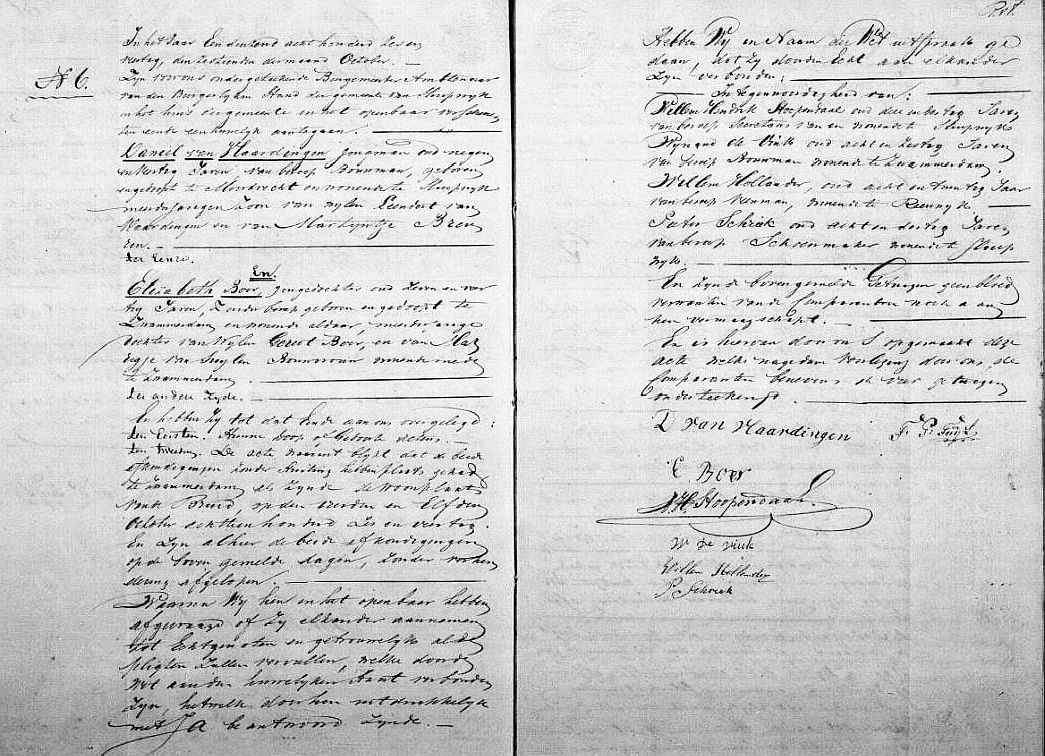 N 6.
In het Jaar Een duizend acht honderd Zes en
veertig, den Zestienden der maand October. —
Zyn voor ons ondergeteekende Burgemeester Ambtenaar
van den Burgerlyken Stand der gemeente van Sluipwyk
in het huis der gemeente en in het openbaar verschenen
ten einde een huwelyk aantegaan. —
Daniel van Vlaardingen Jongman oud negen
en Veertig Jaren, van beroep Bouwman, geboren
en gedoopt te Moordrecht en wonende te Sluipwyk
meerderjarigen Zoon van wylen Leendert van
Vlaardingen en van Martyntje Breu
ren. —
ter Eenre.
En.
Elizabeth Boer, Jongedochter oud Zeven en veer
tig Jaren, Zonder beroep geboren en gedoopt te
Zwammerdam en wonende aldaar, meerderjarige
dochter van Wylen Gerrit Boer, en van
van Bouwvrouw wonende mede
te Zwammerdam. —
ter andere Zyde. —
En hebben Zy tot dat Einde aan ons overgelegd:
ten Eersten. Hunne doop of Geboorte actens. —
ten tweeden. De acte waaruit blykt dat de beide
afkondigingen Zonder Stuiting hebben plaats gehad
te Zwammerdam als Zynde de woonplaats
van de Bruid, op den vierden en Elfden
October achttien honderd Zes en veertig.
En Zyn alhier de beide afkondigingen
op de boven gemelde dagen, Zonder verhin
dering afgelopen. —
Waarna Wy hen in het openbaar hebben
afgevraagd of Zy elkander aannemen
tot Echtgenoten en getrouwelyk al de
pligten Zullen vervullen, welke door de
Wet aan den huwelyken Staat verbonden
Zyn, hetwelk door hen uitdrukkelyk
met JA beantwoord Zynde. —
Hebben Wy in Naam der Wet uitspraak ge
daan, dat Zy door den Echt aan elkander
Zyn verbonden: —
— In tegenwoordigheid van: —
Willem Hendrik Hoopendaal oud drie en Jaren
van beroep Secretaris van en wonende te Sluipwyk
Wynand de Vink oud acht en Zestig Jaren
van beroep Bouwman wonende te Zwammerdam
Willem Hollander, oud acht en twintig Jaar
van beroep Veenman, wonende te Reeuwyk —
Pieter Schriek oud acht en dertig Jaren
van beroep Schoenmaker wonende te Sluip
wyk. —
En Zynde bovengemelde Getuigen geen bloed
verwanten van de Comparanten noch aan
hen vermaagschapt. —
En is hiervan door ons opgemaakt deze
acte welke na gedane Voorlezing door ons, de
Comparanten benevens de vier getuigen
onderteekend. —
D van Vlaardingen
E Boer
W. H. Hoopendaal
W De Vink
Willem Hollander
P. Schriek